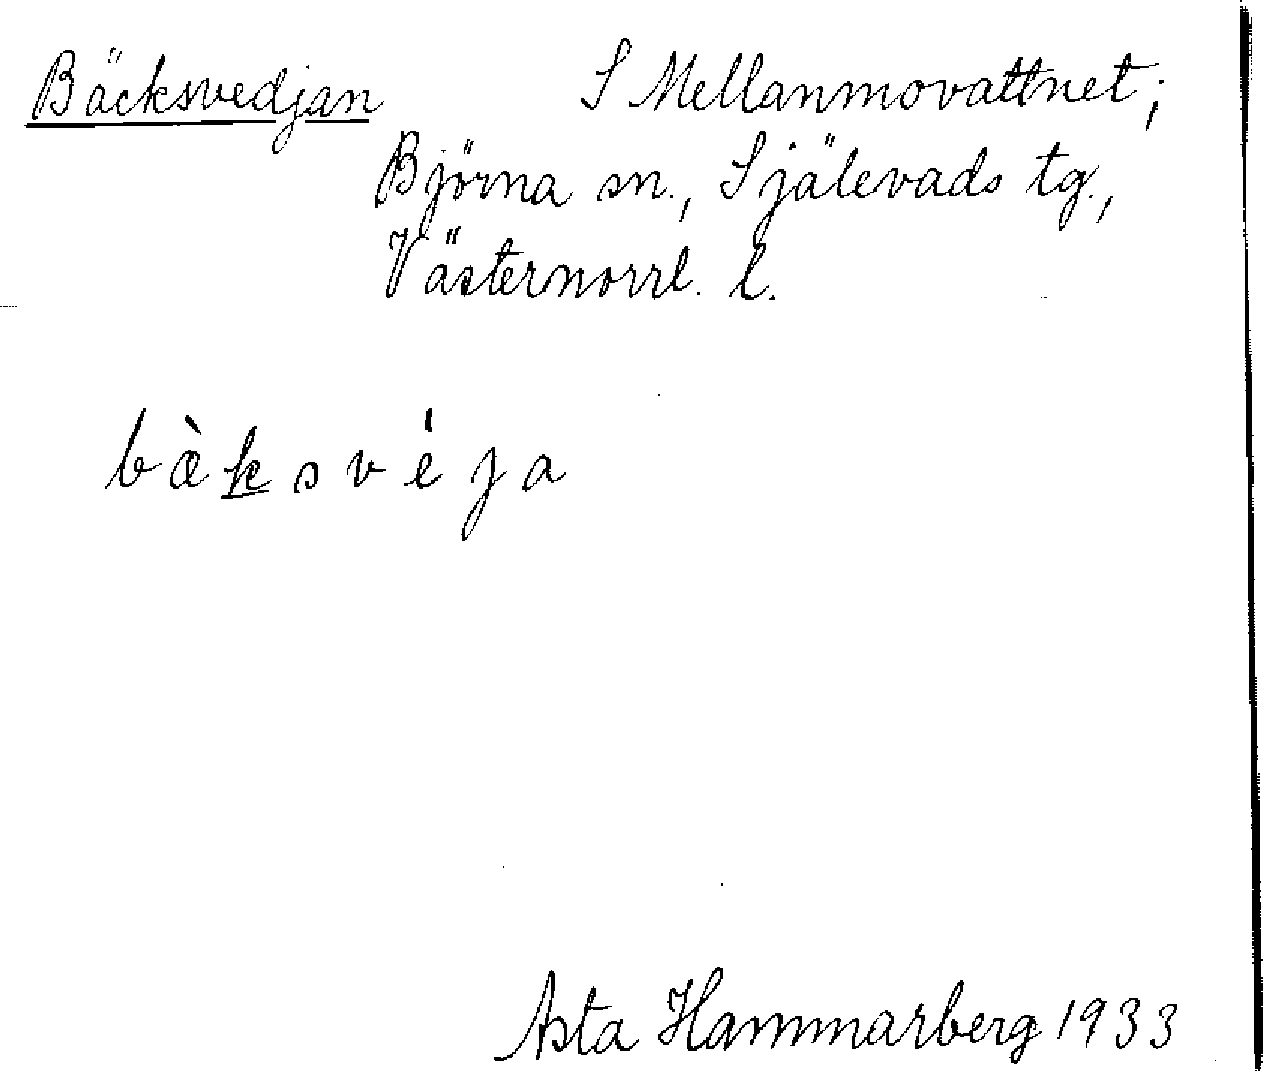 Bäcksvedjan S Mellanmovattnet;
Björna sn., Själevads tg.,
Västernorrl. l.
bæ̀k̲svéja
Asta Hammarberg 1933